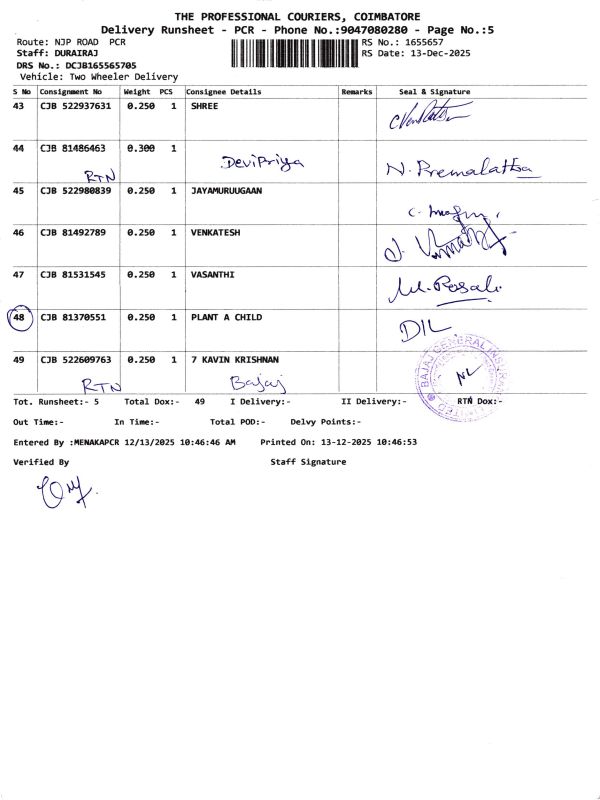 THE PROFESSIONAL COURIERS, COIMBATORE
Delivery Runsheet - PCR - Phone No.:9047080280 - Page No.:5
Route: NJP ROAD PCR RS No.: 1655657
Staff: DURAIRAJ RS Date: 13-Dec-2025
DRS No.: DCJB165565705
Vehicle: Two Wheeler Delivery
S No Consignment No Weight PCS Consignee Details Remarks Seal & Signature
43 CJB 522937631 0.250 1 SHREE
44 CJB 81486463 0.300 1
RTN Devipriya N. Premalatha
45 CJB 522980839 0.250 1 JAYAMURUUGAAN
46 CJB 81492789 0.250 1 VENKATESH
47 CJB 81531545 0.250 1 VASANTHI
48 CJB 81370551 0.250 1 PLANT A CHILD
DIL
49 CJB 522609763 0.250 1 7 KAVIN KRISHNAN
RTN Bajaj
BAJAJ GENERAL INSURANCE LIMITED
Tot. Runsheet:- 5 Total Dox:- 49 I Delivery:- II Delivery:- RTN Dox:-
Out Time:- In Time:- Total POD:- Delvy Points:-
Entered By :MENAKAPCR 12/13/2025 10:46:46 AM Printed On: 13-12-2025 10:46:53
Verified By Staff Signature